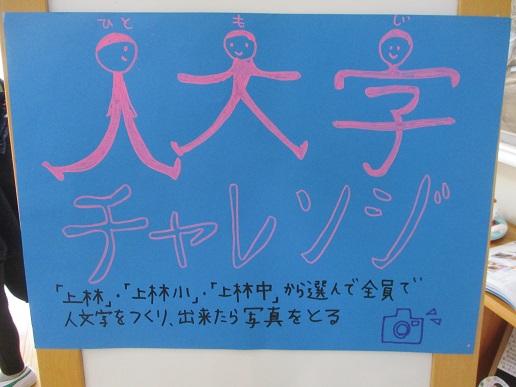 ひと も じ
人文字
チャレンジ
「上林」・「上林小」・「上林中」から選んで全員で
人文字をつくり、出来たら写真をとる